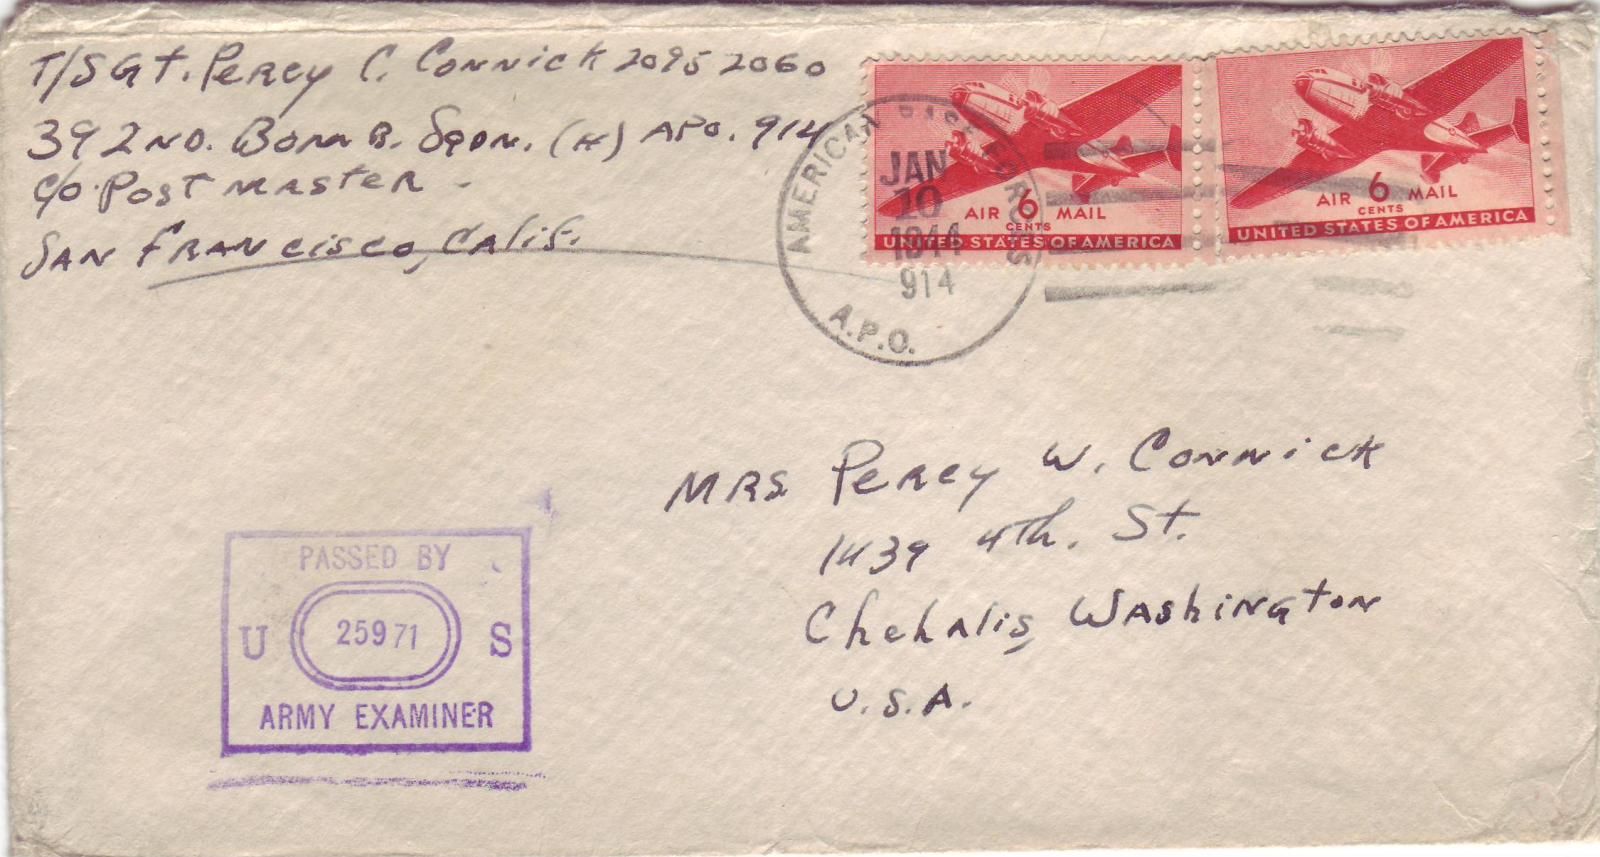 T/SGT. Percy C. Connick 20952060
392ND. BOMB. SQDN. (H) APO. 914
C/O POST MASTER
SAN FRANCISCO, CALIF.
AMERICAN BASE FORCES
JAN
10
1944
914
A.P.O.
AIR 6 MAIL
CENTS
UNITED STATES OF AMERICA
AIR 6 MAIL
CENTS
UNITED STATES OF AMERICA
MRS. Percy W. Connick
1439 4th. St.
Chehalis, Washington
U.S.A.
PASSED BY
U 25971 S
ARMY EXAMINER